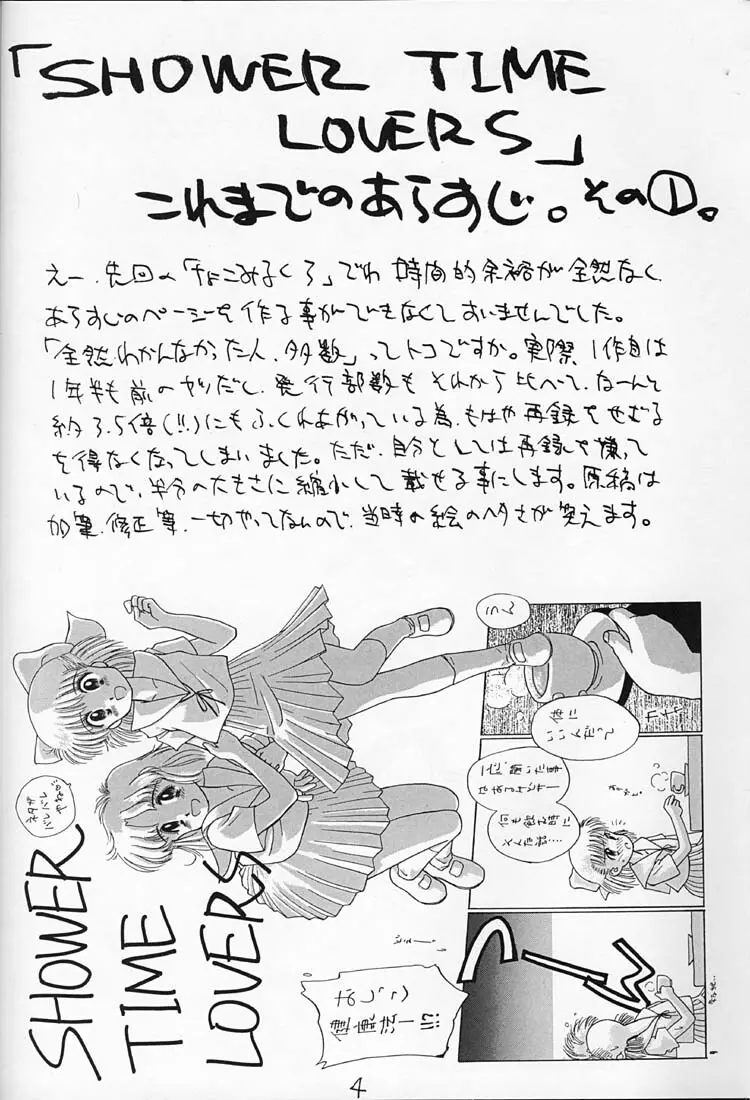 「SHOWER TIME
LOVERS」
これまでのあらすじ。その①。
えー、先回の「ちょこみるくろ」でわ 時間的余裕が全然なく、
あらすじのページを作る事ができなくてすいませんでした。
「全然わかんなかった人、多数」ってトコですか。実際1作目は
1年半も前のヤツだし、発行部数もそれから比べて、なーんと
約3.5倍(!!)にもふくれあがっている為、もはや再録をせざる
を得なくなってしまいました。ただ、自分としては再録を嫌って
いるので、半分の大きさに縮小して載せる事にします。原稿は
加筆、修正等、一切やってないので、当時の絵のヘタさが笑えます。
SHOWER
TIME
LOVERS
体に
いいんだって
つーん
4